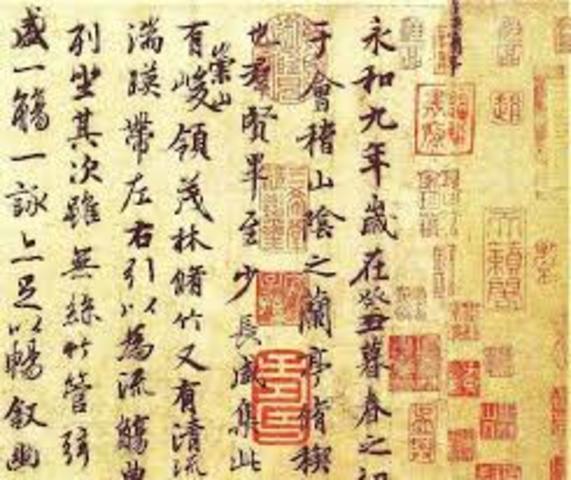 永和九年歲在癸丑暮春之初
于會稽山陰之蘭亭脩稧
也羣賢畢至少長咸集此
有崇山峻領茂林脩竹又有清流
湍暎帶左右引以為流觴曲
列坐其次雖無絲竹管弦
盛一觴一詠亦足以暢敘幽